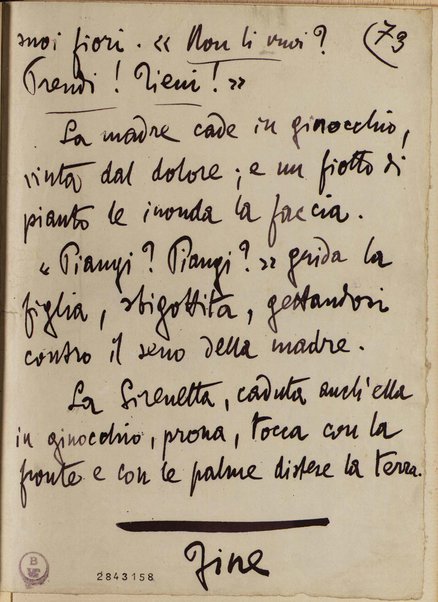 suoi fiori. « Non li vuoi? (73
Prendi! Tieni! »
La madre cade in ginocchio,
vinta dal dolore; e un fiotto di
pianto le inonda la faccia.
« Piangi? Piangi? » grida la
figlia, sbigottita, gettandosi
contro il seno della madre.
La Sirenetta, caduta anch'ella
in ginocchio, prona, tocca con la
fronte e con le palme distese la terra.
Fine
B
2843158